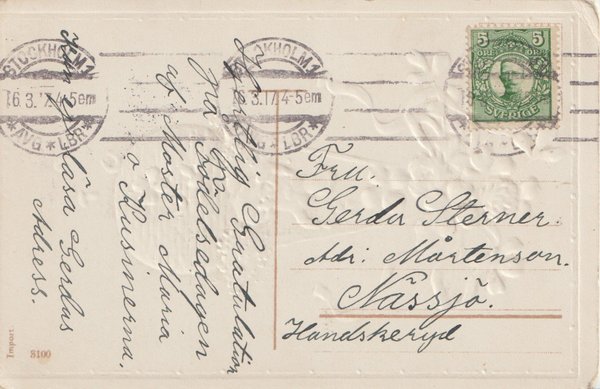 STOCKHOLM 1
16.3.17.4-5em
*AVG*LBR*
STOCKHOLM 1
16.3.17.4-5em
*AVG*LBR*
5 5
ÖRE
SVERIGE
Hjertlig Gratulation
På Födelsedagen
af Moster Maria
o Kusinerna.
läsa Gerdas
Adress.
Fru.
Gerda Sterner
Adr: Mårtenson.
Nässjö.
Handskeryd
Import
8100